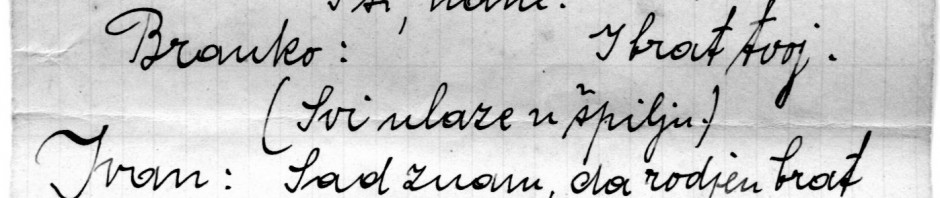 Branko: I brat tvoj.
(Svi ulaze u špilju.)
Ivan: Sad znam, da rodjen brat